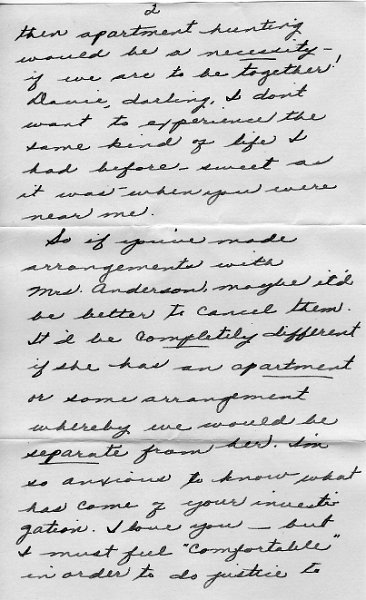 2
then apartment hunting
would be a necessity –
if we are to be together!
Davie, darling, I don't
want to experience the
same kind of life I
had before – sweet as
it was – when you were
near me.
So if you've made
arrangements with
Mrs. Anderson, maybe it'd
be better to cancel them.
It'd be completely different
if she has an apartment
or some arrangement
whereby we would be
separate from her. I'm
so anxious to know what
has come of your investi
gation. I love you – but
I must feel "comfortable"
in order to do justice to